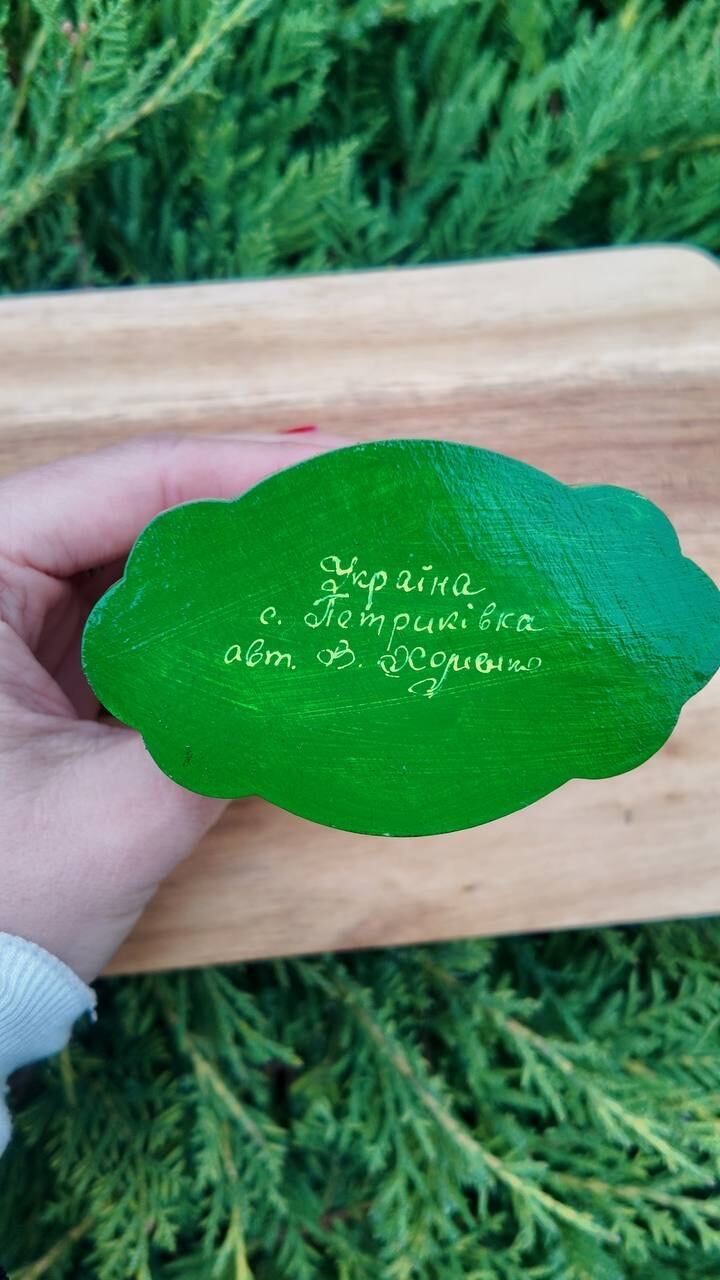 Україна
с. Петриківка
авт. В. Хоменко